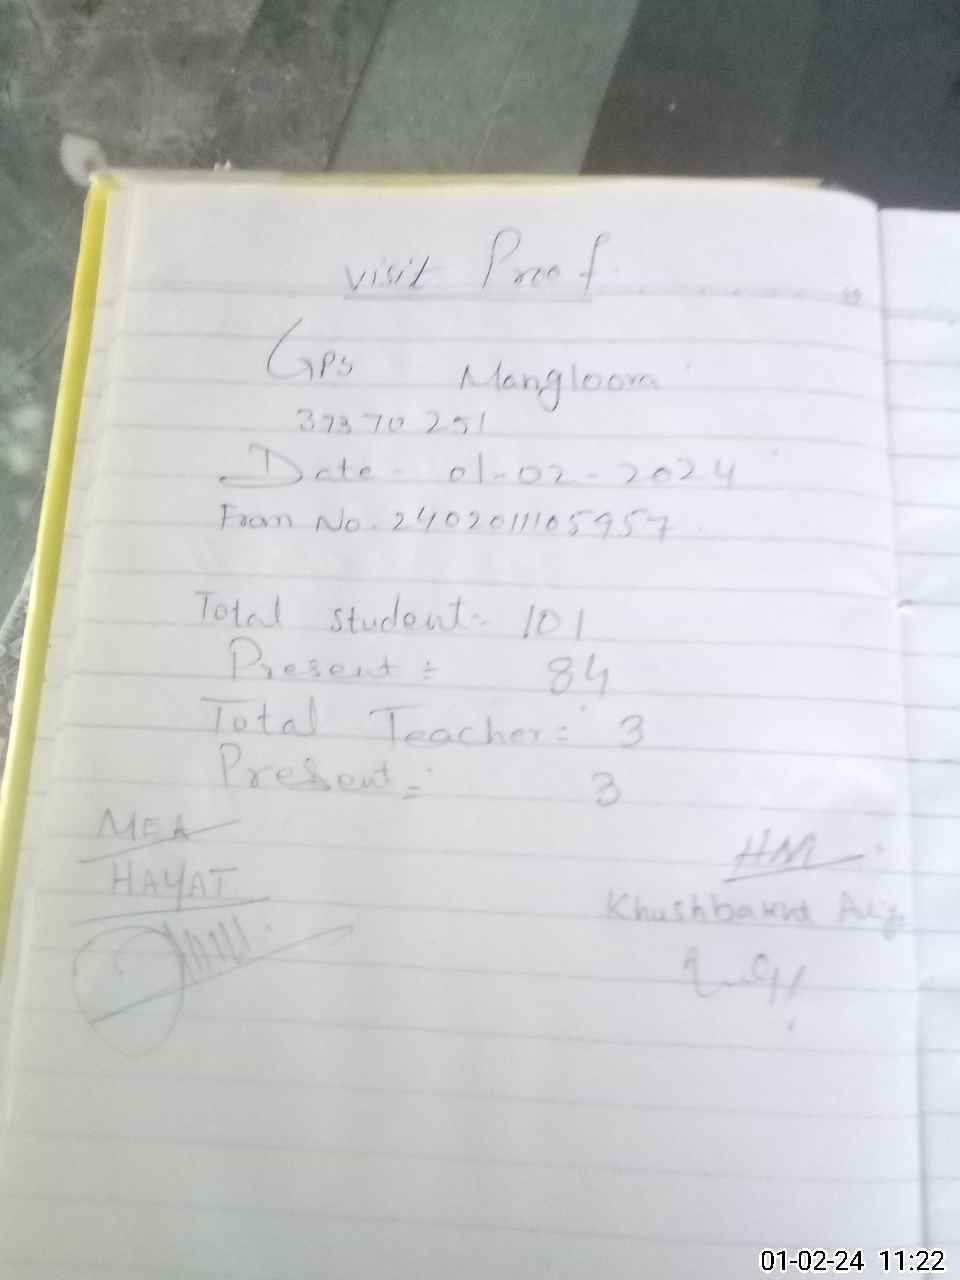 Visit Proof
GPS Mangloora
37370251
Date - 01-02-2024
From No. 2402011105957
Total student:- 101
Present ÷ 84
Total Teacher:- 3
Present :- 3
MEA
HAYAT
HM
Khushbakht
01-02-24 11:22